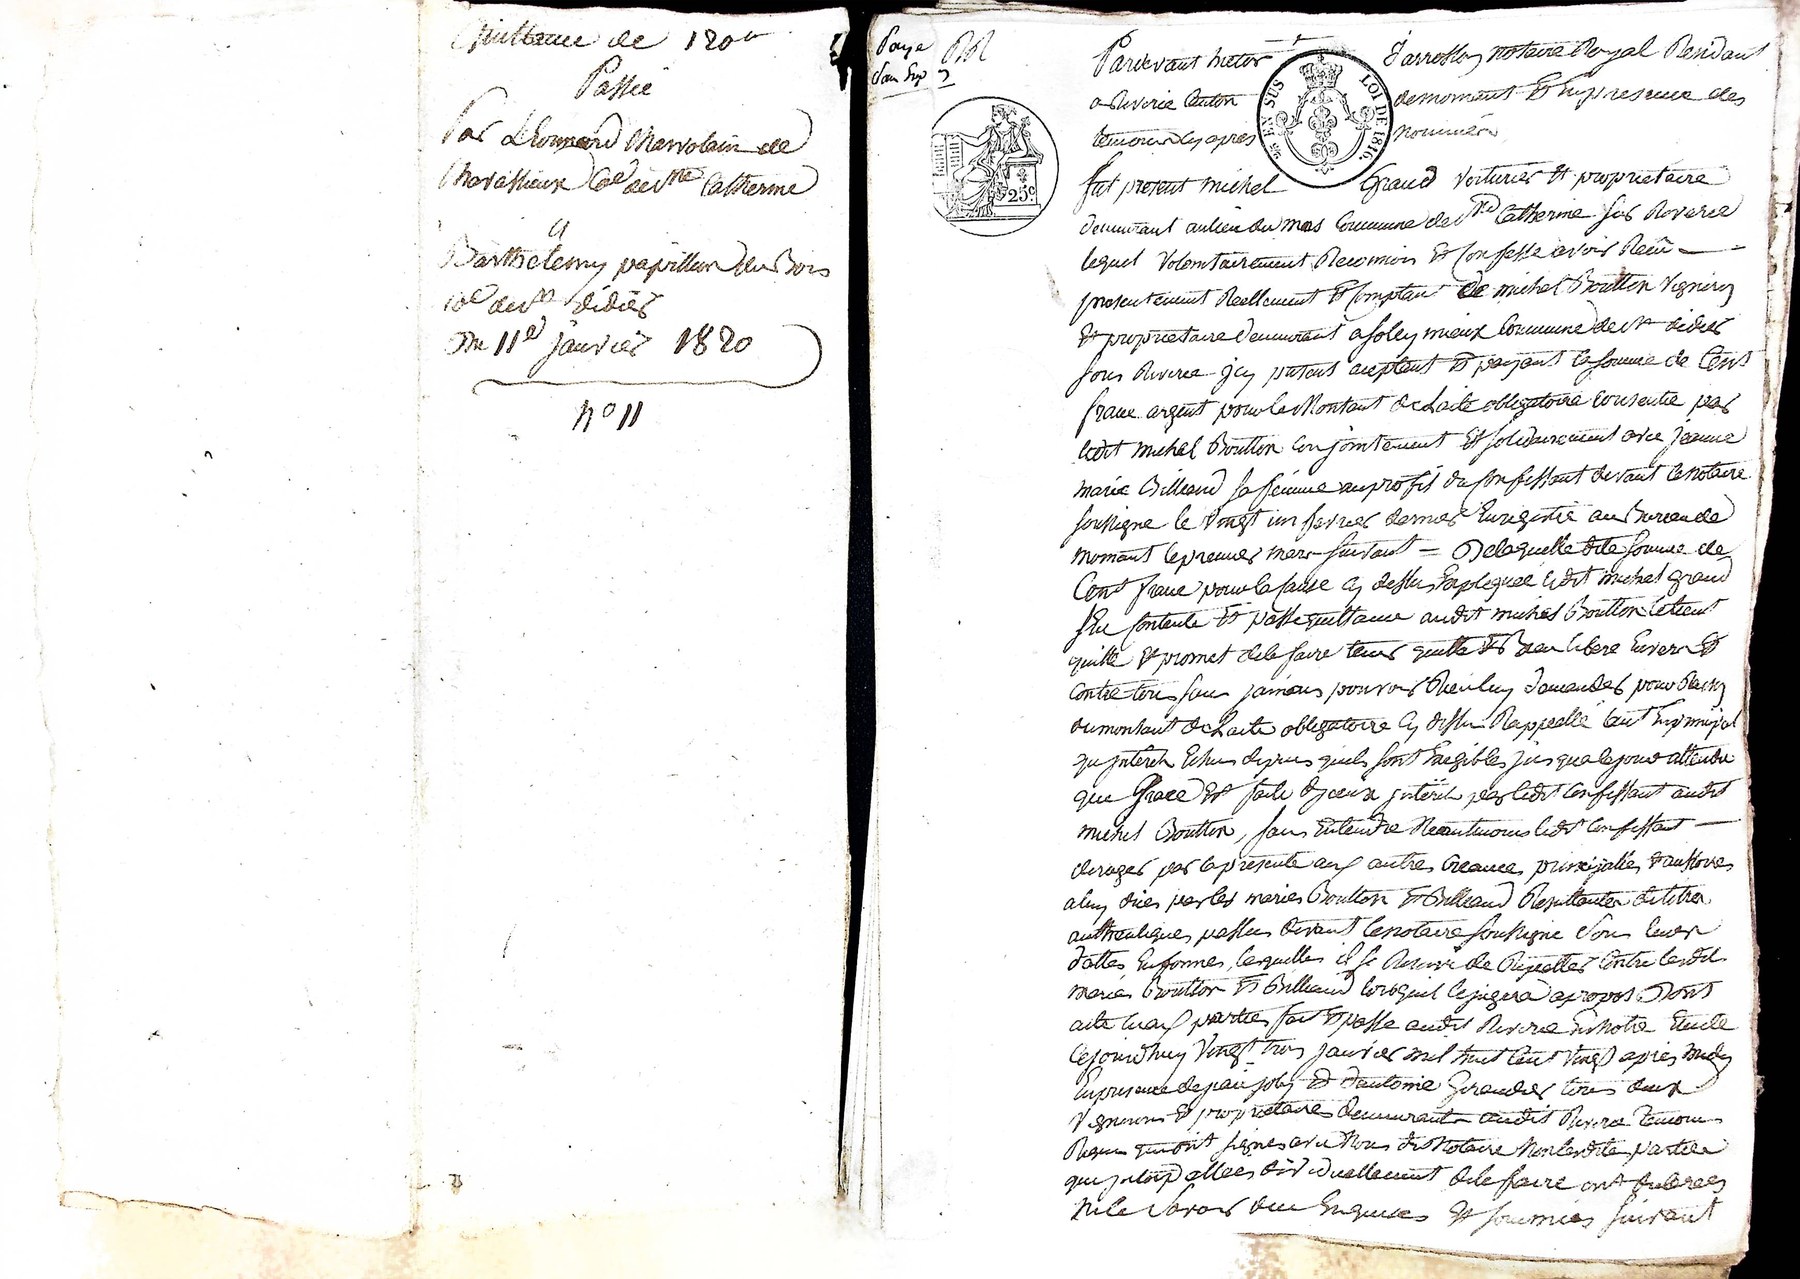 Quittance de 120 #
Passée
Par Léonnard Charvolain de
Charassieux Cne de Ste Catherine
a
Barthelemy papillon du Bois
Cne de St didier
Du 11e janvier 1820
n° 11
Paye
Sans Exp
Pardevant hictor darresson notaire Royal Résidant
a Riverie Canton de mornant Et En presence des
temoins cy apres nommés
EN SUS LOI DE 1816
25c
fut present michel Graud voiturier Et proprietaire
demeurant au lieu du mas Commune de Ste Catherine sur Riverie
lequel volontairement Reconnois Et Confesse avoir Reçu
presentement Reellement Et Comptant de michel Boutton vigneron
Et proprietaire demeurant a soley mieux Commune de St didier
sous Riverie icy present aceptant Et payant la somme de Cent
franc argent pour le Montant de Lacte obligatoire consentie par
ledit michel Boutton Conjointement Et solidairement avec jeanne
marie Billeaud sa femme au profit du Confessant devant le notaire
soussigne le vingt un fevrier dernier Enregistré au Bureau de
mornant le premier mars suivant = De laquelle dite somme de
Cent franc pour la cause cy dessus Expliquée ledit michel graud
sen Contente Et passe quittance audit michel Boutton le tient
quitte Et promet de le faire tenir quitte Et Bien libere Envers Et
contre tous sans jamais pouvoir Rien luy demander pour Raison
du montant de Lacte obligatoire cy dessus Rappellé tant En principal
qu interets Echus depuis quils sont Exigibles jus qua le jour attendu
que Grace Est faite diceux interets par ledit Confessant audit
michel Boutton, sans Entendre Neantmoins ledit Confessant
deroger par la presente aux autres Creances principalles Et accessoires
a luy dues par les mariés Boutton Et Billeaud Resultantes de titres
authentiques passés devant le notaire soussigne sous leurs
dattes En formes, lesquelles il se Reserve de Repetter Contre lesdits
mariés Boutton Et Billeaud lorsquil le jugera apropos Dont
acte aux parties fait Et passe audit Riverie En Notre Etude
Cejourdhuy Vingt trois janvier mil huit Cent vingt apres midy
En presence de jean joly Et dantoine Girauder tous deux
vignerons Et proprietaires demeurants audit Riverie temoins
Requis qui ont signés avec Nous dit Notaire Non lesdites parties
qui interpellees dividuellement de le faire ont declarees
Ne le savoir deu Enquises Et sommees suivant